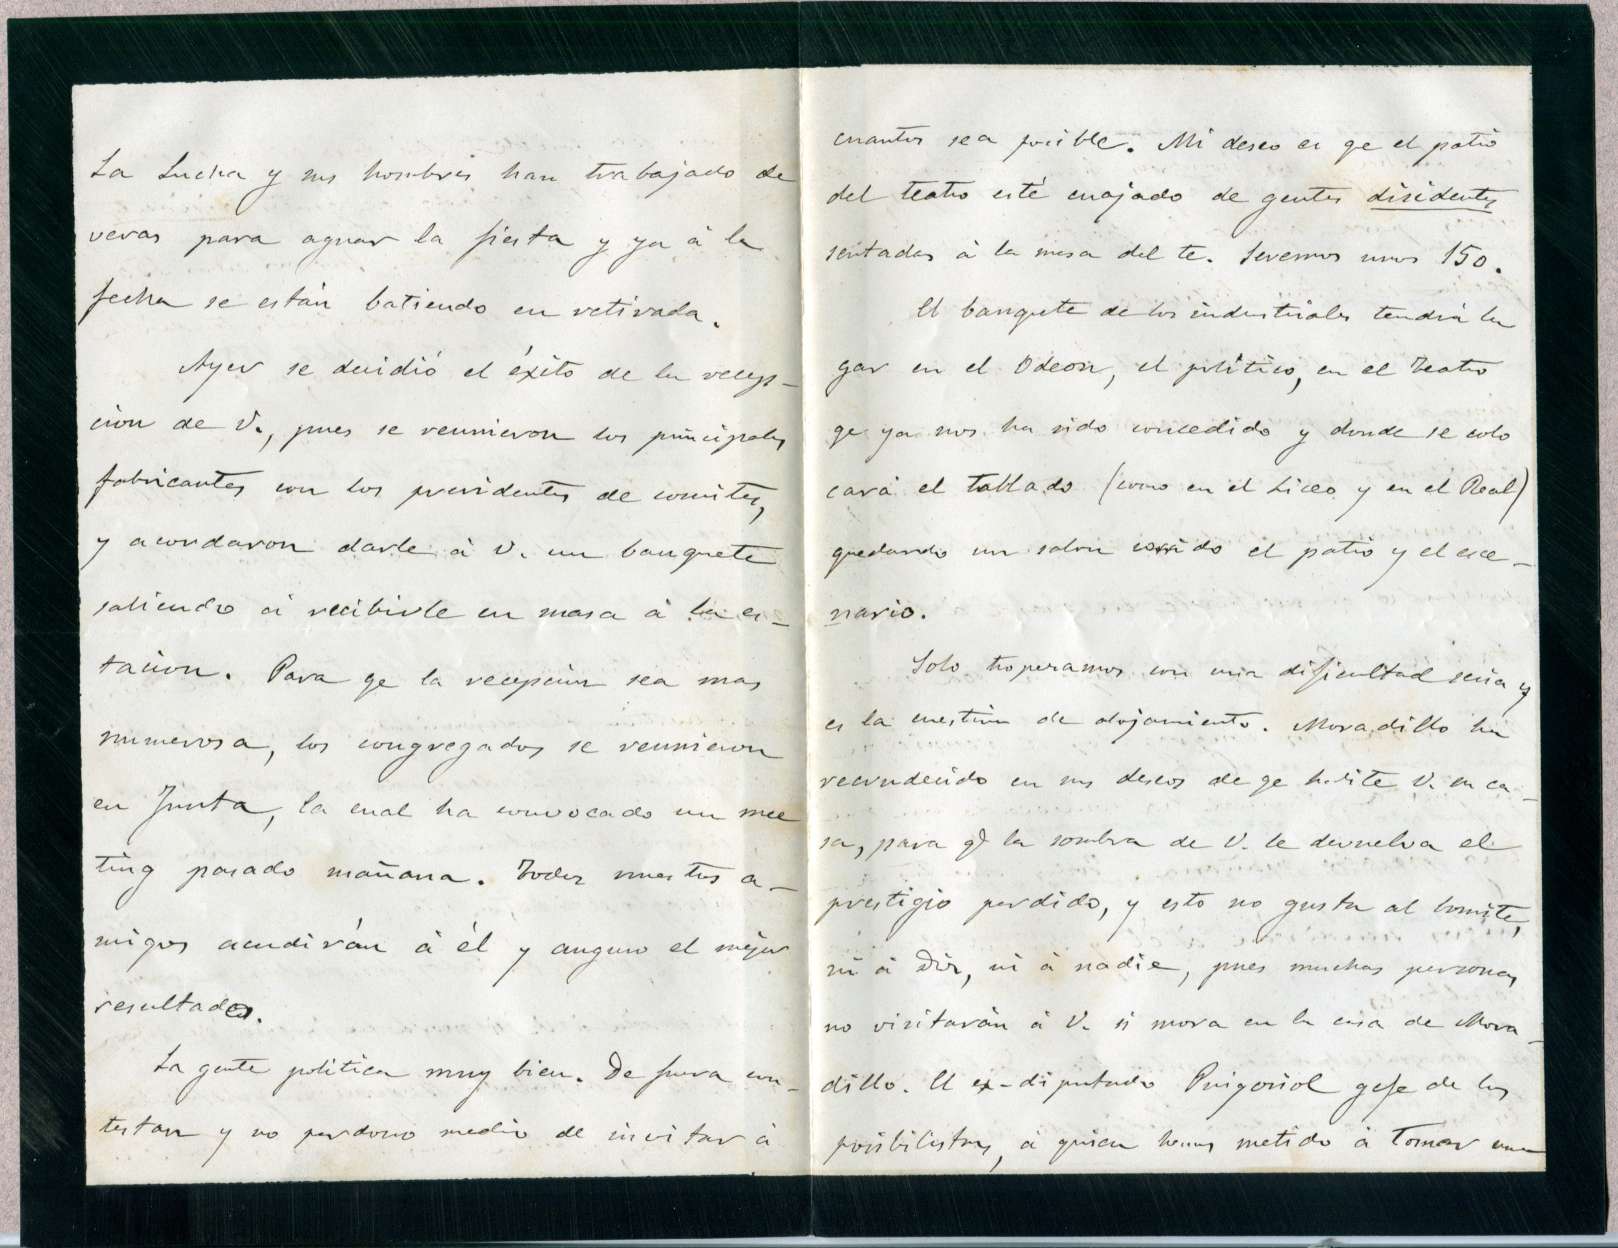 La Lucha y sus hombres han trabajado de
veras para aguar la fiesta y ya á la
fecha se están batiendo en retirada.
Ayer se decidió el éxito de la recep-
cion de V., pues se reunieron los principales
fabricantes con los presidentes de comites,
y acordaron darle á V. un banquete
saliendo á recibirle en masa á la es-
tacion. Para qe la recepcion sea mas
numerosa, los congregados se reunieron
en Junta, la cual ha convocado un mee
ting pasado mañana. Todos nuestros a-
migos acudirán á él y auguro el mejor
resultado.
La gente politica muy bien. De fuera con-
testan y no perdono medio de invitar á
cuantos sea posible. Mi deseo es qe el patio
del teatro esté cuajado de gentes disidentes
sentadas á la mesa del te. Seremos unos 150.
El banquete de los industriales tendrá lu
gar en el Odeon, el político, en el Teatro
qe ya nos ha sido concedido y donde se colo
cará el tablado (como en el Liceo y en el Real)
quedando un salon corrido el patio y el esce-
nario.
Solo troperamos con una dificultad seria y
es la cuestion de alojamiento. Moradillo ha
recrudecido en sus deseos de qe habite V. su ca-
sa, para qe la sombra de V. le devuelva el
prestigio perdido, y esto no gusta al Comite,
ni á Dir, ni á nadie, pues muchas personas
no visitarán á V. si mora en la casa de Mora-
dillo. El ex-diputado Puigoriol gefe de los
posibilistas, á quien hemos metido á tomar una